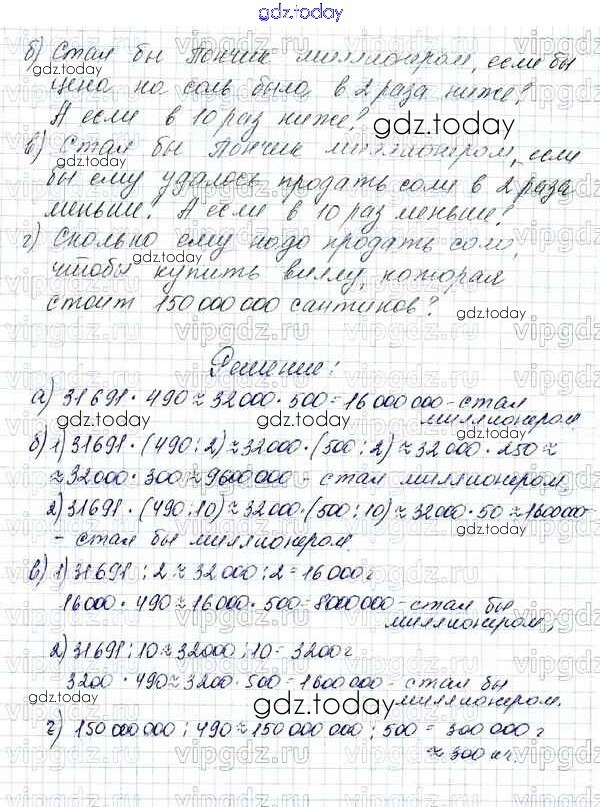 gdz.today
б) Стал бы Пончик миллионером, если бы
цена на соль была в 2 раза ниже?
А если в 10 раз ниже?
в) Стал бы Пончик миллионером, если
бы ему удалось продать соли в 2 раза
меньше? А если в 10 раз меньше?
г) Сколько ему надо продать соли,
чтобы купить виллу, которая
стоит 150 000 000 сантиков?
Решение:
а) 31691 · 490 ≈ 32000 · 500 = 16 000 000 - стал
миллионером
б) 1) 31691 · (490 : 2) ≈ 32000 · (500 : 2) ≈ 32000 · 250 ≈
≈ 32000 · 300 ≈ 9600000 - стал миллионером,
2) 31691 · (490 : 10) ≈ 32000 · (500 : 10) ≈ 32000 · 50 ≈ 1600000 -
- стал бы миллионером.
в) 1) 31691 : 2 ≈ 32000 : 2 = 16000 г
16000 · 490 ≈ 16000 · 500 = 8000000 - стал бы
миллионером,
2) 31691 : 10 ≈ 32000 : 10 = 3200 г
3200 · 490 ≈ 3200 · 500 = 1600000 - стал бы
миллионером.
г) 150 000 000 : 490 ≈ 150 000 000 : 500 = 300 000 г
≈ 300 кг.